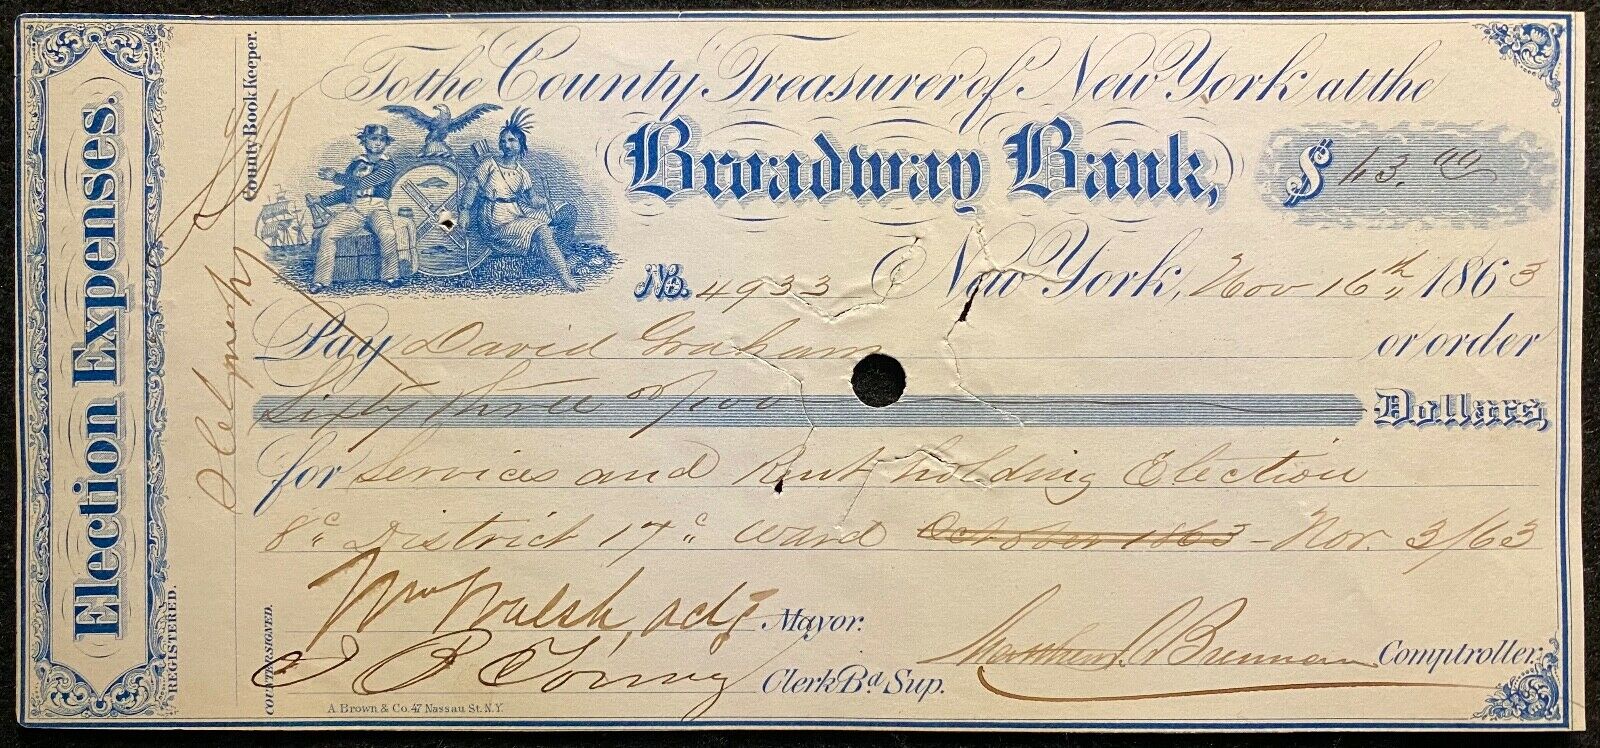 Election Expenses.
REGISTERED.
County Book Keeper.
To the County Treasurer of New York at the
Broadway Bank,
$ 63.00
No. 4933 New York, Nov 16th 1863
Pay David Graham or order
Sixty three 00/100 Dollars,
for Services and Rent holding Election
8c District 17c Ward October 1863 - Nov. 3/63
COUNTERSIGNED.
Wm Walsh, actg Mayor.
Matthew T. Brennan Comptroller.
Clerk Bd Sup.
A. Brown & Co. 47 Nassau St. N.Y.